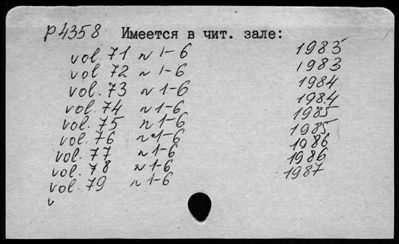 р4358 Имеется в чит. зале:
vol. 71 n 1-6 1983
vol 72 n 1-6 1983
vol. 73 n 1-6 1984
vol. 74 n 1-6 1984
vol. 75 n 1-6 1985
vol. 76 n 1-6 1985
vol. 77 n 1-6 1986
vol. 78 n 1-6 1986
vol. 79 n 1-6 1987
v